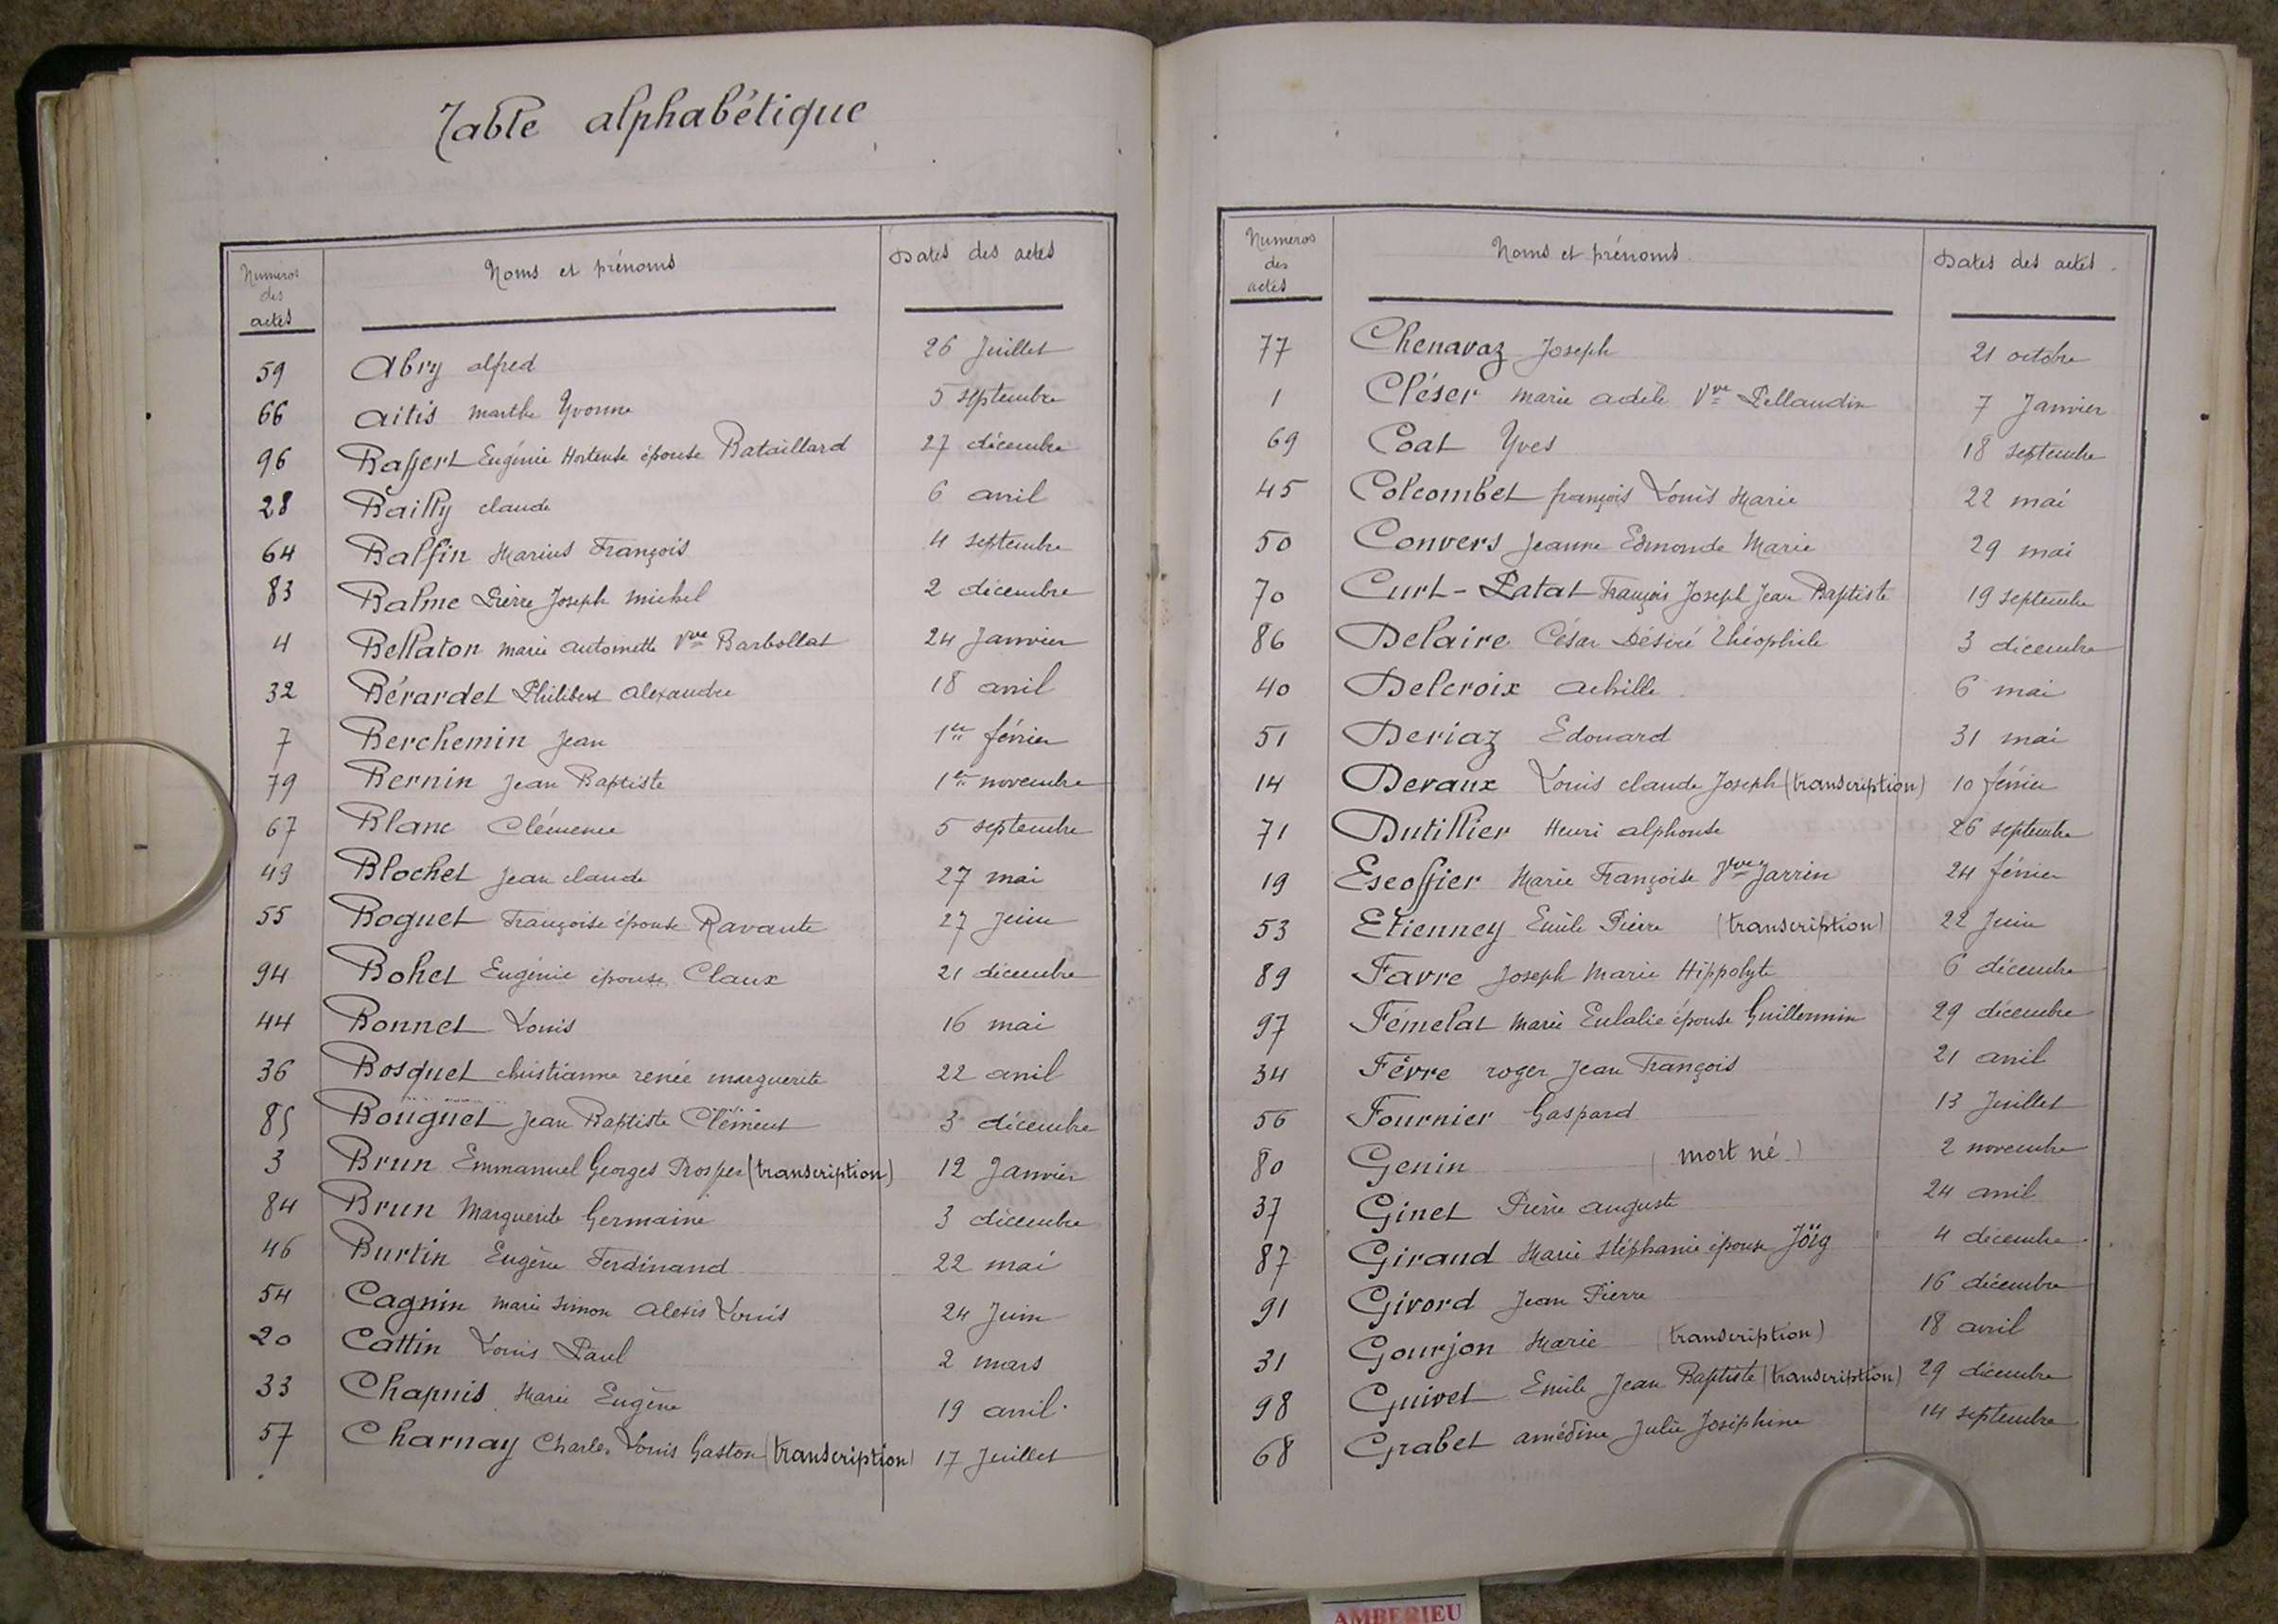 Table alphabétique
Numéros des actes Noms et prénoms Dates des actes
59 Abry alfred 26 Juillet
66 Aitis marthe Yvonne 5 septembre
96 Baffert Eugénie Hortense épouse Bataillard 27 décembre
28 Bailly claude 6 avril
64 Balfin Marius François 4 septembre
83 Balme Pierre Joseph michel 2 décembre
4 Bellaton marie antoinette Vve Barbollat 24 Janvier
32 Bérardet Philibert alexandre 18 avril
7 Berchemin Jean 1er février
79 Bernin Jean Baptiste 1er novembre
67 Blanc Clémence 5 septembre
49 Blochet Jean claude 27 mai
55 Boguet Françoise épouse Ravante 27 Juin
94 Bohet Eugénie épouse Claux 21 décembre
44 Bonnet Louis 16 mai
36 Bosquet christianne renée marguerite 22 avril
85 Bouguet Jean Baptiste Clément 3 décembre
3 Brun Emmanuel Georges Prosper (transcription) 12 Janvier
84 Brun Marguerite Germaine 3 décembre
46 Burtin Eugène Ferdinand 22 mai
54 Cagnin marie Simon Alexis Louis 24 Juin
20 Cattin Louis Paul 2 mars
33 Chapuis Marie Eugène 19 avril
57 Charnay Charles Louis Gaston (transcription) 17 Juillet
Numeros des actes Noms et prénoms Dates des actes
77 Chenavaz Joseph 21 octobre
1 Cléser marie adèle Vve Pellaudin 7 Janvier
69 Coat Yves 18 septembre
45 Colcombet françois Louis Marie 22 mai
50 Convers Jeanne Edmonde Marie 29 mai
70 Curt-Patat François Joseph Jean Baptiste 19 septembre
86 Delaire César Désiré Théophile 3 décembre
40 Delcroix achille 6 mai
51 Deriaz Edouard 31 mai
14 Devaux Louis claude Joseph (transcription) 10 février
71 Dutillier Henri alphonse 26 septembre
19 Escoffier Marie Françoise Vve Jarrin 24 février
53 Etienney Emile Pierre (transcription) 22 Juin
89 Favre Joseph Marie Hippolyte 6 décembre
97 Fémelat marie Eulalie épouse Guillermin 29 décembre
34 Fèvre roger Jean François 21 avril
56 Fournier Gaspard 13 Juillet
80 Genin (mort né) 2 novembre
37 Ginet Pierre auguste 24 avril
87 Giraud Marie Stéphanie épouse Jöig 4 décembre
91 Givord Jean Pierre 16 décembre
31 Gourjon Marie (transcription) 18 avril
98 Guivet Emile Jean Baptiste (transcription) 29 décembre
68 Grabet amédine Julie Joséphine 14 septembre
AMBERIEU